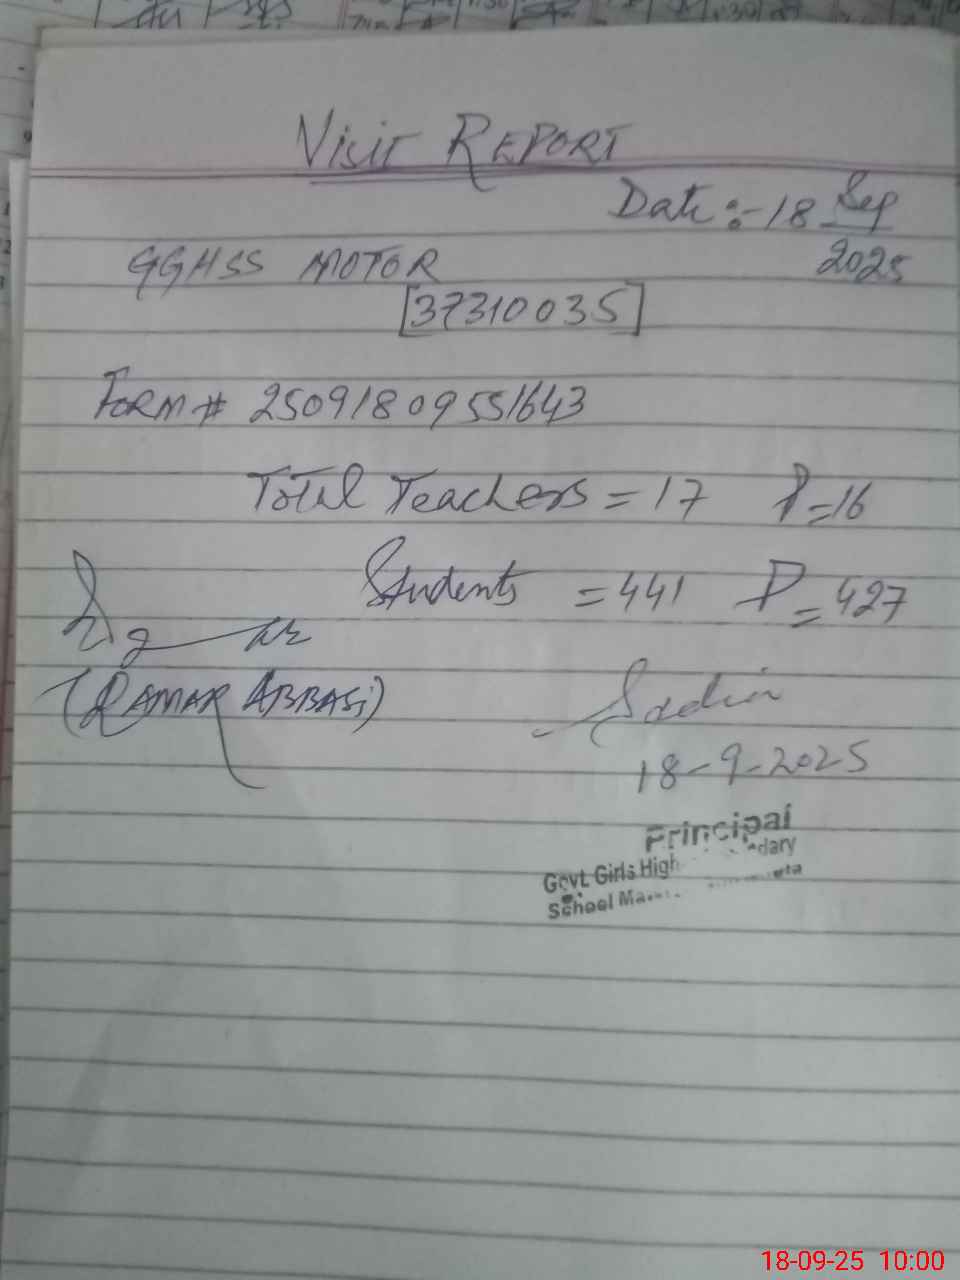 Visit REPORT
Date :- 18 Sep
2025
GGHSS MOTOR
[37310035]
FORM # 25091809551643
Total Teachers = 17 P = 16
Students = 441 P = 427
(QAMAR ABBASi)
Sadia
18-9-2025
Principal
Govt. Girls High
School
18-09-25 10:00